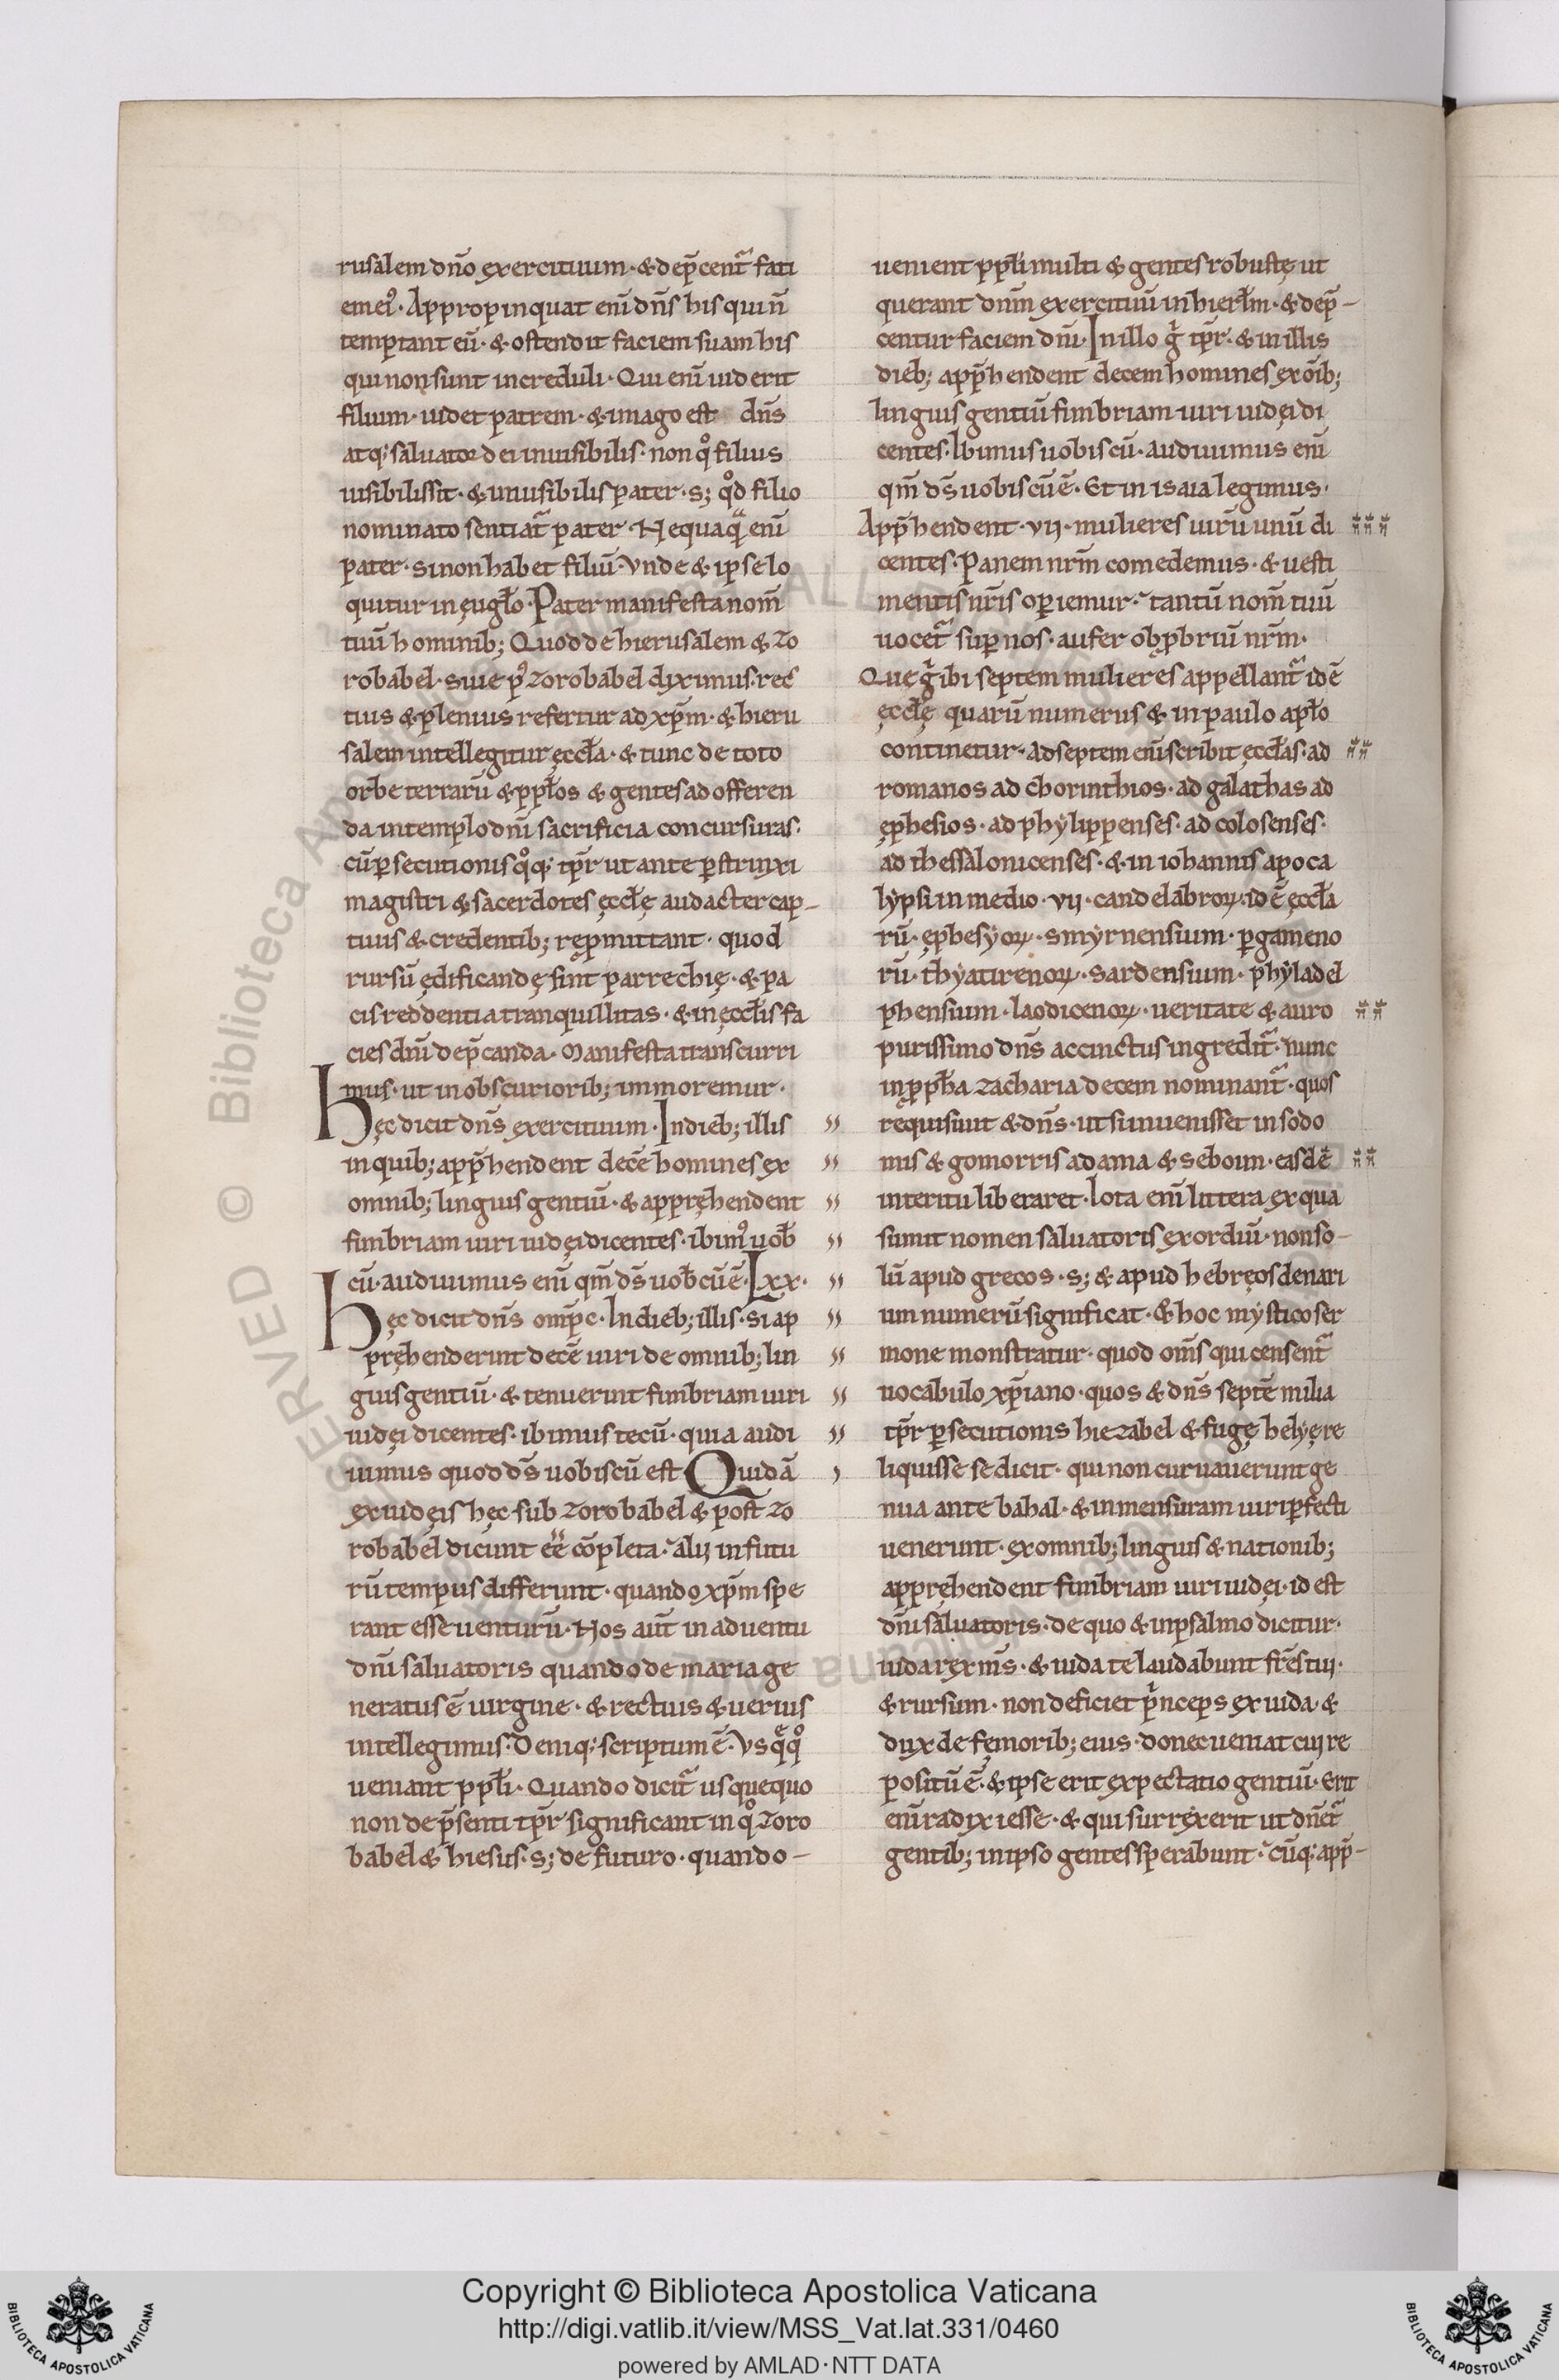 rusalem dño exercituum · & dep̃cent᷑ fati
emei᷒ · Appropinquat eni᷑ dñs his qui ñ
temptant eū · & ostendit faciem suam his
qui non sunt increduli · Qui eni᷑ uiderit
filium · uidet patrem · & imago est dñs
atq; saluator dei inuisibilis · non qͦ filius
uisibilis sit · & inuisibilis pater · s; qͦd filio
nominato sentiat᷑ pater · Nequaqᷓ eni᷑
pater · si non habet filiū · Vnde & ipse lo
quitur in ęuglo · Pater manifesta nom̄
tuū hominib; Quod de hierusalem & zo
robabel · siue p᷒ zorobabel diximus · rec
tius & plenius refertur ad xp̄m · & hieru
salem intellegitur ęccła · & tunc de toto
orbe terrarū & ppłos & gentes ad offeren
da in templo dñi sacrificia concursuras ·
cū ꝑsecutionis qͦq; tp̄r ut ante ꝑstrinxi
magistri & sacerdotes ęccłę audacter cap-
tiuis & credentib; rep̱mittant · quod
rursū ędificandę sint parrechię · & pa
cis reddentia tranquillitas · & in ęccłis fa
cies dñi dep̃canda · Manifesta transcurri
mus · ut in obscuriorib; inmoremur ·
Hęc dicit dñs exercituum · In dieb; illis
in quib; app̃hendent decē homines ex
omnib; linguis gentiū · & appręhendent
fimbriam uiri iudęi dicentes · ibim᷒ uob̄
cū · audiuimus eni᷑ qm̄ ds̄ uob̄cū ē · Lxx ·
Hęc dicit dñs omp̄c · In dieb; illis · si ap
pręhenderint decē uiri de omnib; lin
guis gentiū · & tenuerint fimbriam uiri
iudęi dicentes · ibimus tecū · quia audi
uimus quod ds̄ uobiscū est Quidā
ex iudęis hęc sub zorobabel & post zo
robabel dicunt ēē cōpleta · alij in futu
rū tempus differunt · quando xp̄m spe
rant esse uenturū · Nos aut̄ in aduentu
dñi saluatoris quando de maria ge
neratus ē uirgine · & rectius & uerius
intellegimus · Deniq; scriptum ē · Vsqͤqͦ
ueniant ppłi · Quando dicit᷑ usquequo
non de p̃senti tp̄r significant in qͦ zoro
babel & hiesus · s; de futuro · quando -
uenient ppłi multi & gentes robustę ut
querant dnm̄ exercituū in hierłm · & dep̃-
centur faciem dñi · In illo gͥ tp̄r · & in illis
dieb; app̃hendent decem homines ex oīb;
linguis gentiū fimbriam uiri iudęi di
centes · Ibimus uobiscū · audiuimus eni᷑
qm̄ ds̄ uobiscū ē · Et in isaia legimus ·
App̃hendent · vij · mulieres uirū unū di
centes · Panem nrm̄ comedemus · & uesti
mentis nr̄is oꝑiemur · tantū nom̄ tuū
uocet᷑ suꝑ nos · aufer obꝓbriū nrm̄ ·
Que gͥ ibi septem mulieres appellant᷑ id ē
ęccłę quarū numerus & in paulo apło
continetur · ad septem eni᷑ scribit ęccłas · ad
romanos ad chorinthios · ad galathas ad
ephesios · ad phylippenses · ad colosenses ·
ad thessalonicenses · & in iohannis apoca
lypsi in medio · vij · candelabroꝝ · id ē ęccła
rū · ephesyoꝝ · smyrnensium · ꝑgameno
rū · thyatirenoꝝ · sardensium · phyladel
phensium · laodicenoꝝ · ueritate & auro
purissimo dñs accinctus ingredit᷑ · nunc
in ꝓpħa zacharia decem nominant᷑ · quos
requisiuit & dñs · ut si inuenisset in sodo
mis & gomorris adama & seboim · easdē
interitu liberaret · Iota eni᷑ littera ex qua
sumit nomen saluatoris exordiū · non so-
lū apud grecos · s; & apud hebręos denari
um numerū significat · & hoc mystico ser
mone monstratur · quod om̄s qui censent᷑
uocabulo xp̄iano · quos & dñs septē milia
tp̄r ꝑsecutionis hiezabel & fugę helyę re
liquisse se dicit · qui non curuauerunt ge
nua ante bahal · & in mensuram uiri ꝑfecti
uenerunt · ex omnib; linguis & nationib;
apprehendent fimbriam uiri iudęi · id est
dñi saluatoris · de quo & in psalmo dicitur ·
iuda rex m̄s · & iuda te laudabunt fr̄es tui ·
& rursum · non deficiet pͥnceps ex iuda · &
dux de femorib; eius · donec ueniat cui re
positū ē · & ipse erit expectatio gentiū · Erit
eni᷑ radix iesse · & qui surrexerit ut dñet᷑
gentib; in ipso gentes sperabunt · cūq; app̃-
© Biblioteca Apostolica Vaticana
Copyright © Biblioteca Apostolica Vaticana
http://digi.vatlib.it/view/MSS_Vat.lat.331/0460
powered by AMLAD · NTT DATA
BIBLIOTECA APOSTOLICA VATICANA
BIBLIOTECA APOSTOLICA VATICANA